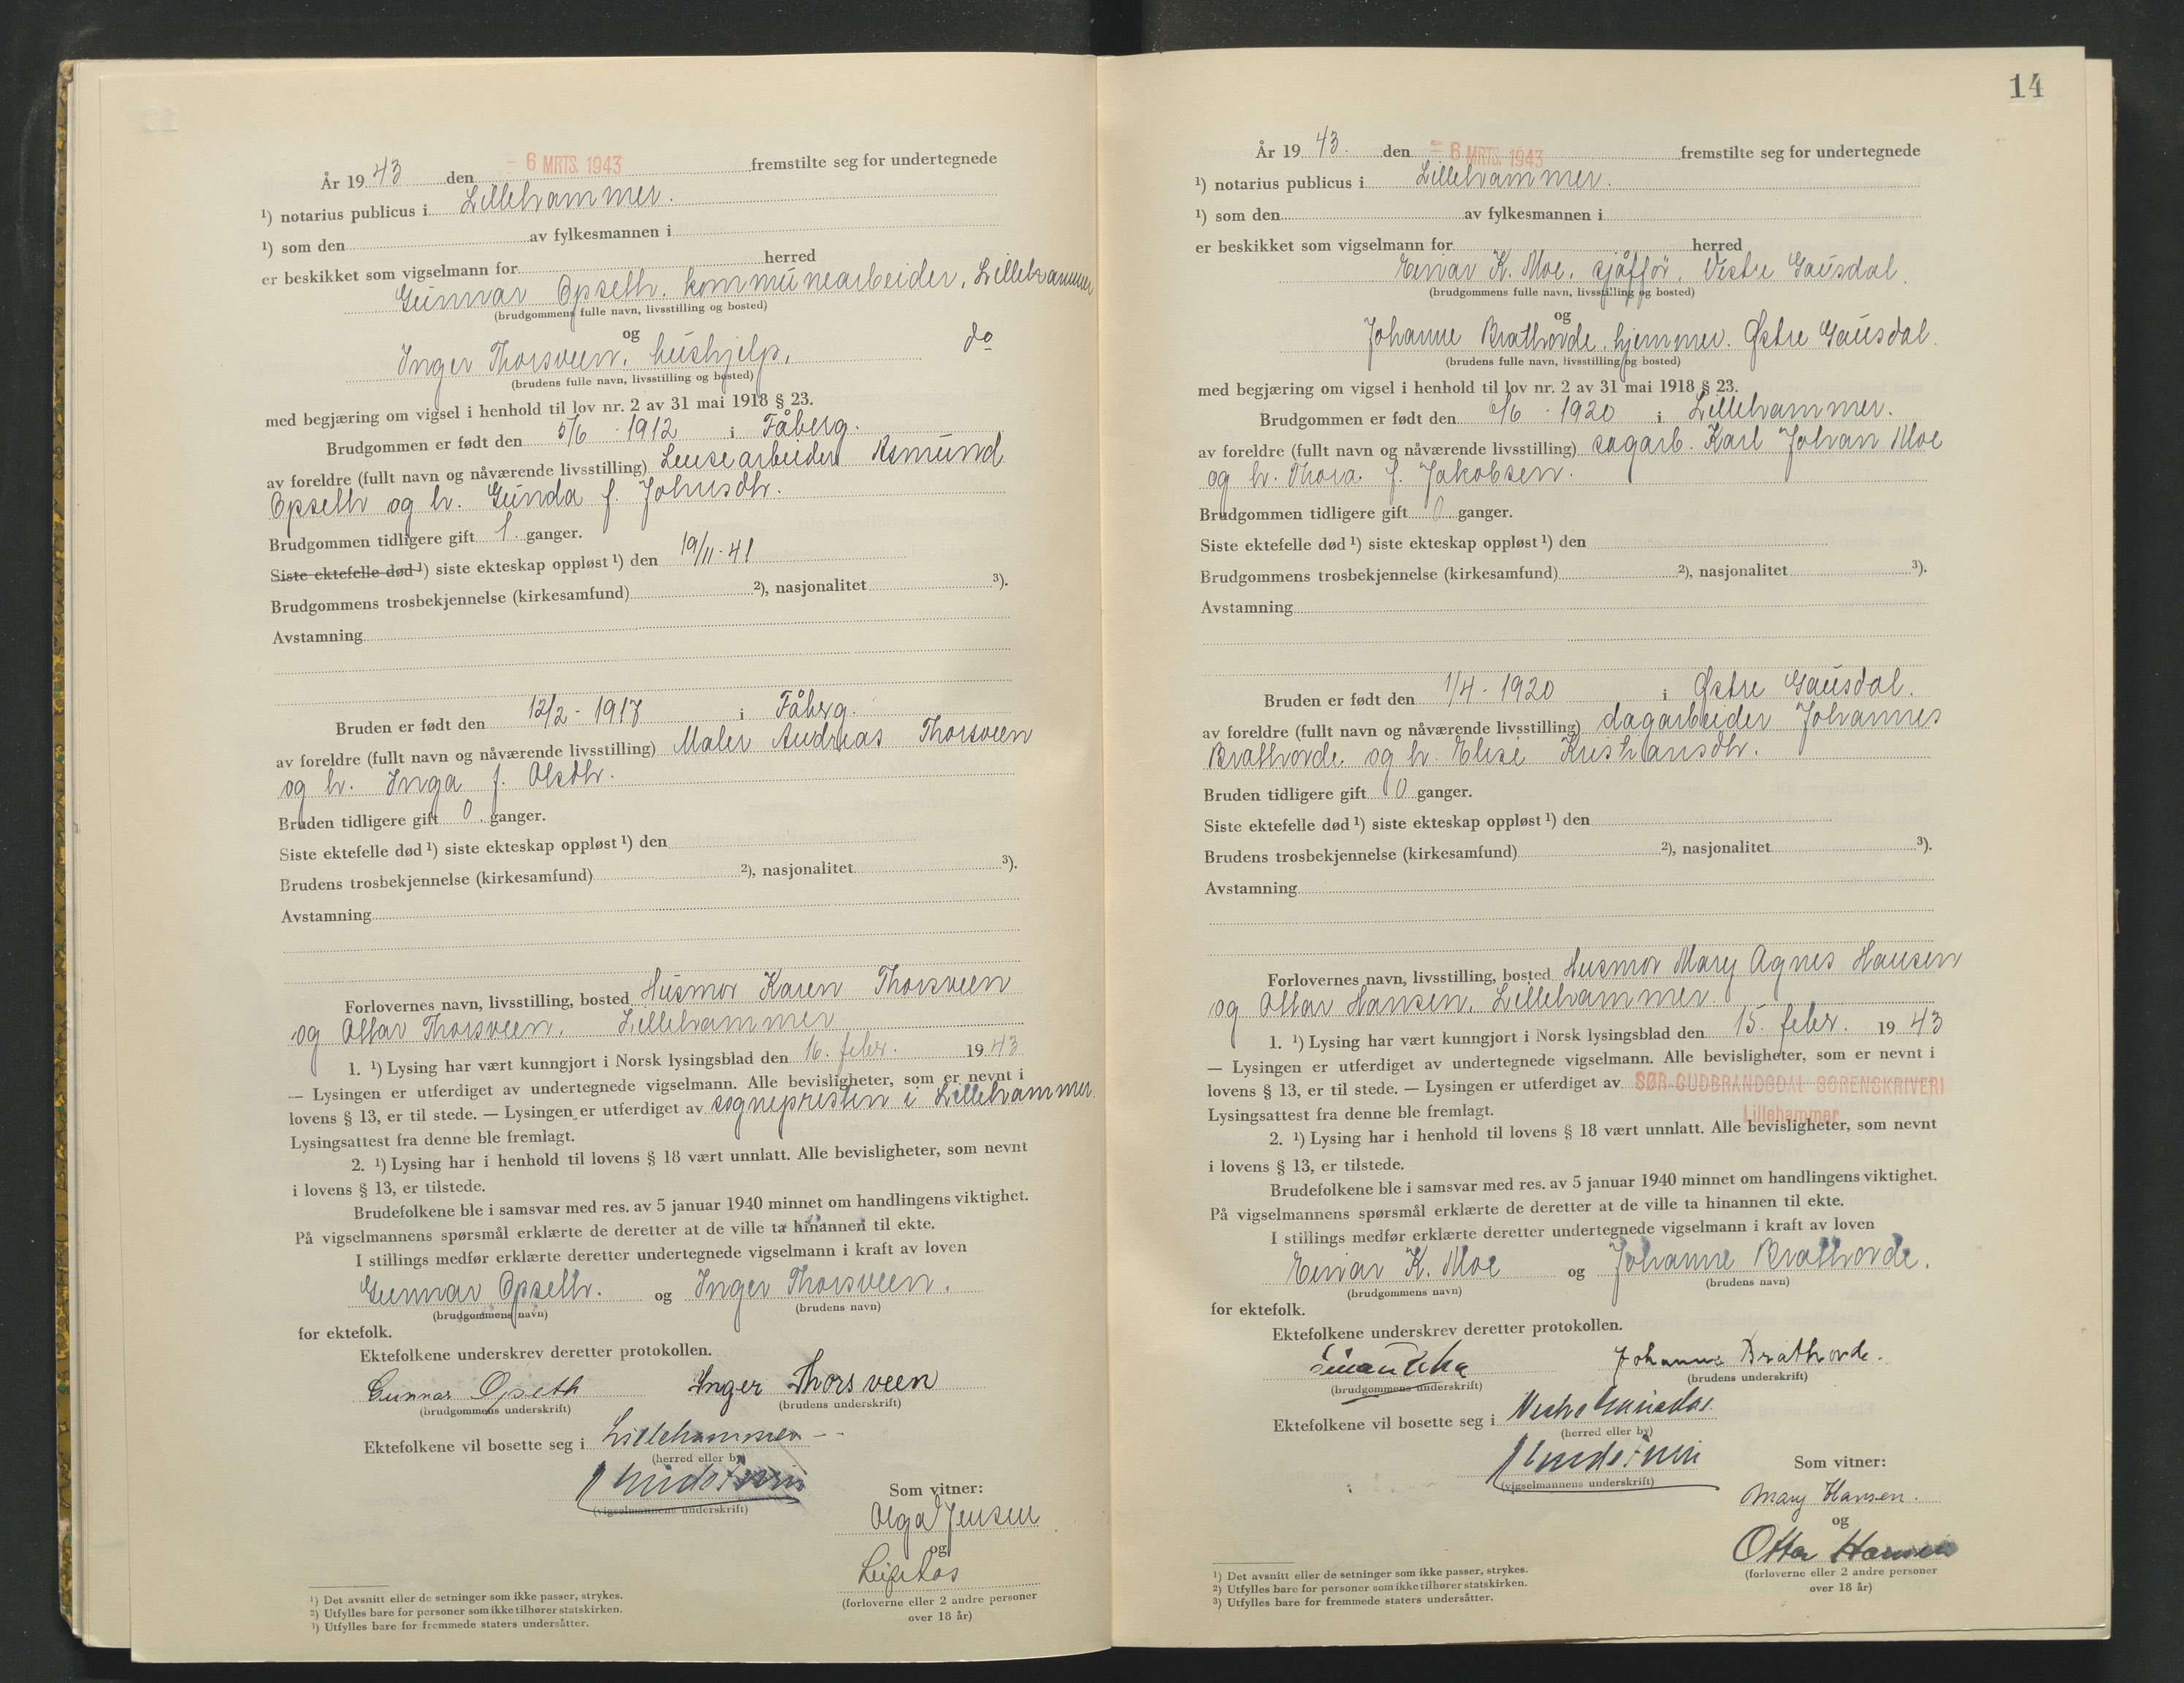 År 19 43 den - 6 MRTS. 1943 fremstilte seg for undertegnede
¹) notarius publicus i Lillehammer.
¹) som den av fylkesmannen i
er beskikket som vigselmann for herred
Gunnar Opseth, kommunearbeider, Lillehammer
(brudgommens fulle navn, livsstilling og bosted)
og
Inger Thorsveen, hushjelp, do
(brudens fulle navn, livsstilling og bosted)
med begjæring om vigsel i henhold til lov nr. 2 av 31 mai 1918 § 23.
Brudgommen er født den 5/6 - 1912 i Fåberg.
av foreldre (fullt navn og nåværende livsstilling) Lensearbeider Asmund
Opseth og h. Gunda f. Johnsdtr.
Brudgommen tidligere gift 1. ganger.
Siste ektefelle død ¹) siste ekteskap oppløst ¹) den 19/11-41
Brudgommens trosbekjennelse (kirkesamfund) ²), nasjonalitet ³).
Avstamning
Bruden er født den 12/2 - 1917 i Fåberg.
av foreldre (fullt navn og nåværende livsstilling) Maler Andreas Thorsveen
og h. Inga f. Olsdtr.
Bruden tidligere gift 0. ganger.
Siste ektefelle død ¹) siste ekteskap oppløst ¹) den
Brudens trosbekjennelse (kirkesamfund) ²), nasjonalitet ³).
Avstamning
Forlovernes navn, livsstilling, bosted Husmor Karen Thorsveen
og Ottar Thorsveen, Lillehammer
1. ¹) Lysing har vært kunngjort i Norsk lysingsblad den 16. febr. 19 43
— Lysingen er utferdiget av undertegnede vigselmann. Alle bevisligheter, som er nevnt i
lovens § 13, er til stede. — Lysingen er utferdiget av sogneprestin i Lillehammer.
Lysingsattest fra denne ble fremlagt.
2. ¹) Lysing har i henhold til lovens § 18 vært unnlatt. Alle bevisligheter, som nevnt
i lovens § 13, er tilstede.
Brudefolkene ble i samsvar med res. av 5 januar 1940 minnet om handlingens viktighet.
På vigselmannens spørsmål erklærte de deretter at de ville ta hinannen til ekte.
I stillings medfør erklærte deretter undertegnede vigselmann i kraft av loven
Gunnar Opseth. og Inger Thorsveen.
(brudgommens navn) (brudens navn)
for ektefolk.
Ektefolkene underskrev deretter protokollen.
Gunnar Opseth Inger Thorsveen
(brudgommens underskrift) (brudens underskrift)
Ektefolkene vil bosette seg i Lillehammer
(herred eller by)
(vigselmannens underskrift)
Som vitner:
Olga Jensen
og
(forloverne eller 2 andre personer
over 18 år)
¹) Det avsnitt eller de setninger som ikke passer, strykes.
²) Utfylles bare for personer som ikke tilhører statskirken.
³) Utfylles bare for fremmede staters undersåtter.
14
År 19 43. den - 6 MRTS. 1943 fremstilte seg for undertegnede
¹) notarius publicus i Lillehammer.
¹) som den av fylkesmannen i
er beskikket som vigselmann for herred
Einar K. Moe, sjåfför, Vestre Gausdal.
(brudgommens fulle navn, livsstilling og bosted)
og
Johanne Brathovde, hjemmev. Østre Gausdal.
(brudens fulle navn, livsstilling og bosted)
med begjæring om vigsel i henhold til lov nr. 2 av 31 mai 1918 § 23.
Brudgommen er født den /6 - 1920 i Lillehammer.
av foreldre (fullt navn og nåværende livsstilling) sagarb. Karl Johan Moe
og h. Thora f. Jakobsen.
Brudgommen tidligere gift 0 ganger.
Siste ektefelle død ¹) siste ekteskap oppløst ¹) den
Brudgommens trosbekjennelse (kirkesamfund) ²), nasjonalitet ³).
Avstamning
Bruden er født den 1/4 - 1920 i Østre Gausdal.
av foreldre (fullt navn og nåværende livsstilling) dagarbeider Johannes
Brathovde og h. Elise Kristiansdtr.
Bruden tidligere gift 0 ganger.
Siste ektefelle død ¹) siste ekteskap oppløst ¹) den
Brudens trosbekjennelse (kirkesamfund) ²), nasjonalitet ³).
Avstamning
Forlovernes navn, livsstilling, bosted Husmor Mary Agnes Hansen
og Ottar Hansen, Lillehammer.
1. ¹) Lysing har vært kunngjort i Norsk lysingsblad den 15. febr. 19 43
— Lysingen er utferdiget av undertegnede vigselmann. Alle bevisligheter, som er nevnt i
lovens § 13, er til stede. — Lysingen er utferdiget av SØR-GUDBRANDSDAL SORENSKRIVERI
Lysingsattest fra denne ble fremlagt. Lillehammer
2. ¹) Lysing har i henhold til lovens § 18 vært unnlatt. Alle bevisligheter, som nevnt
i lovens § 13, er tilstede.
Brudefolkene ble i samsvar med res. av 5 januar 1940 minnet om handlingens viktighet.
På vigselmannens spørsmål erklærte de deretter at de ville ta hinannen til ekte.
I stillings medfør erklærte deretter undertegnede vigselmann i kraft av loven
Einar K. Moe og Johanne Brathovde.
(brudgommens navn) (brudens navn)
for ektefolk.
Ektefolkene underskrev deretter protokollen.
Johanne Brathovde.
(brudgommens underskrift) (brudens underskrift)
Ektefolkene vil bosette seg i Vestre Gausdal.
(herred eller by)
(vigselmannens underskrift)
Som vitner:
Mary Hansen.
og
Ottar Hansen
(forloverne eller 2 andre personer
over 18 år)
¹) Det avsnitt eller de setninger som ikke passer, strykes.
²) Utfylles bare for personer som ikke tilhører statskirken.
³) Utfylles bare for fremmede staters undersåtter.